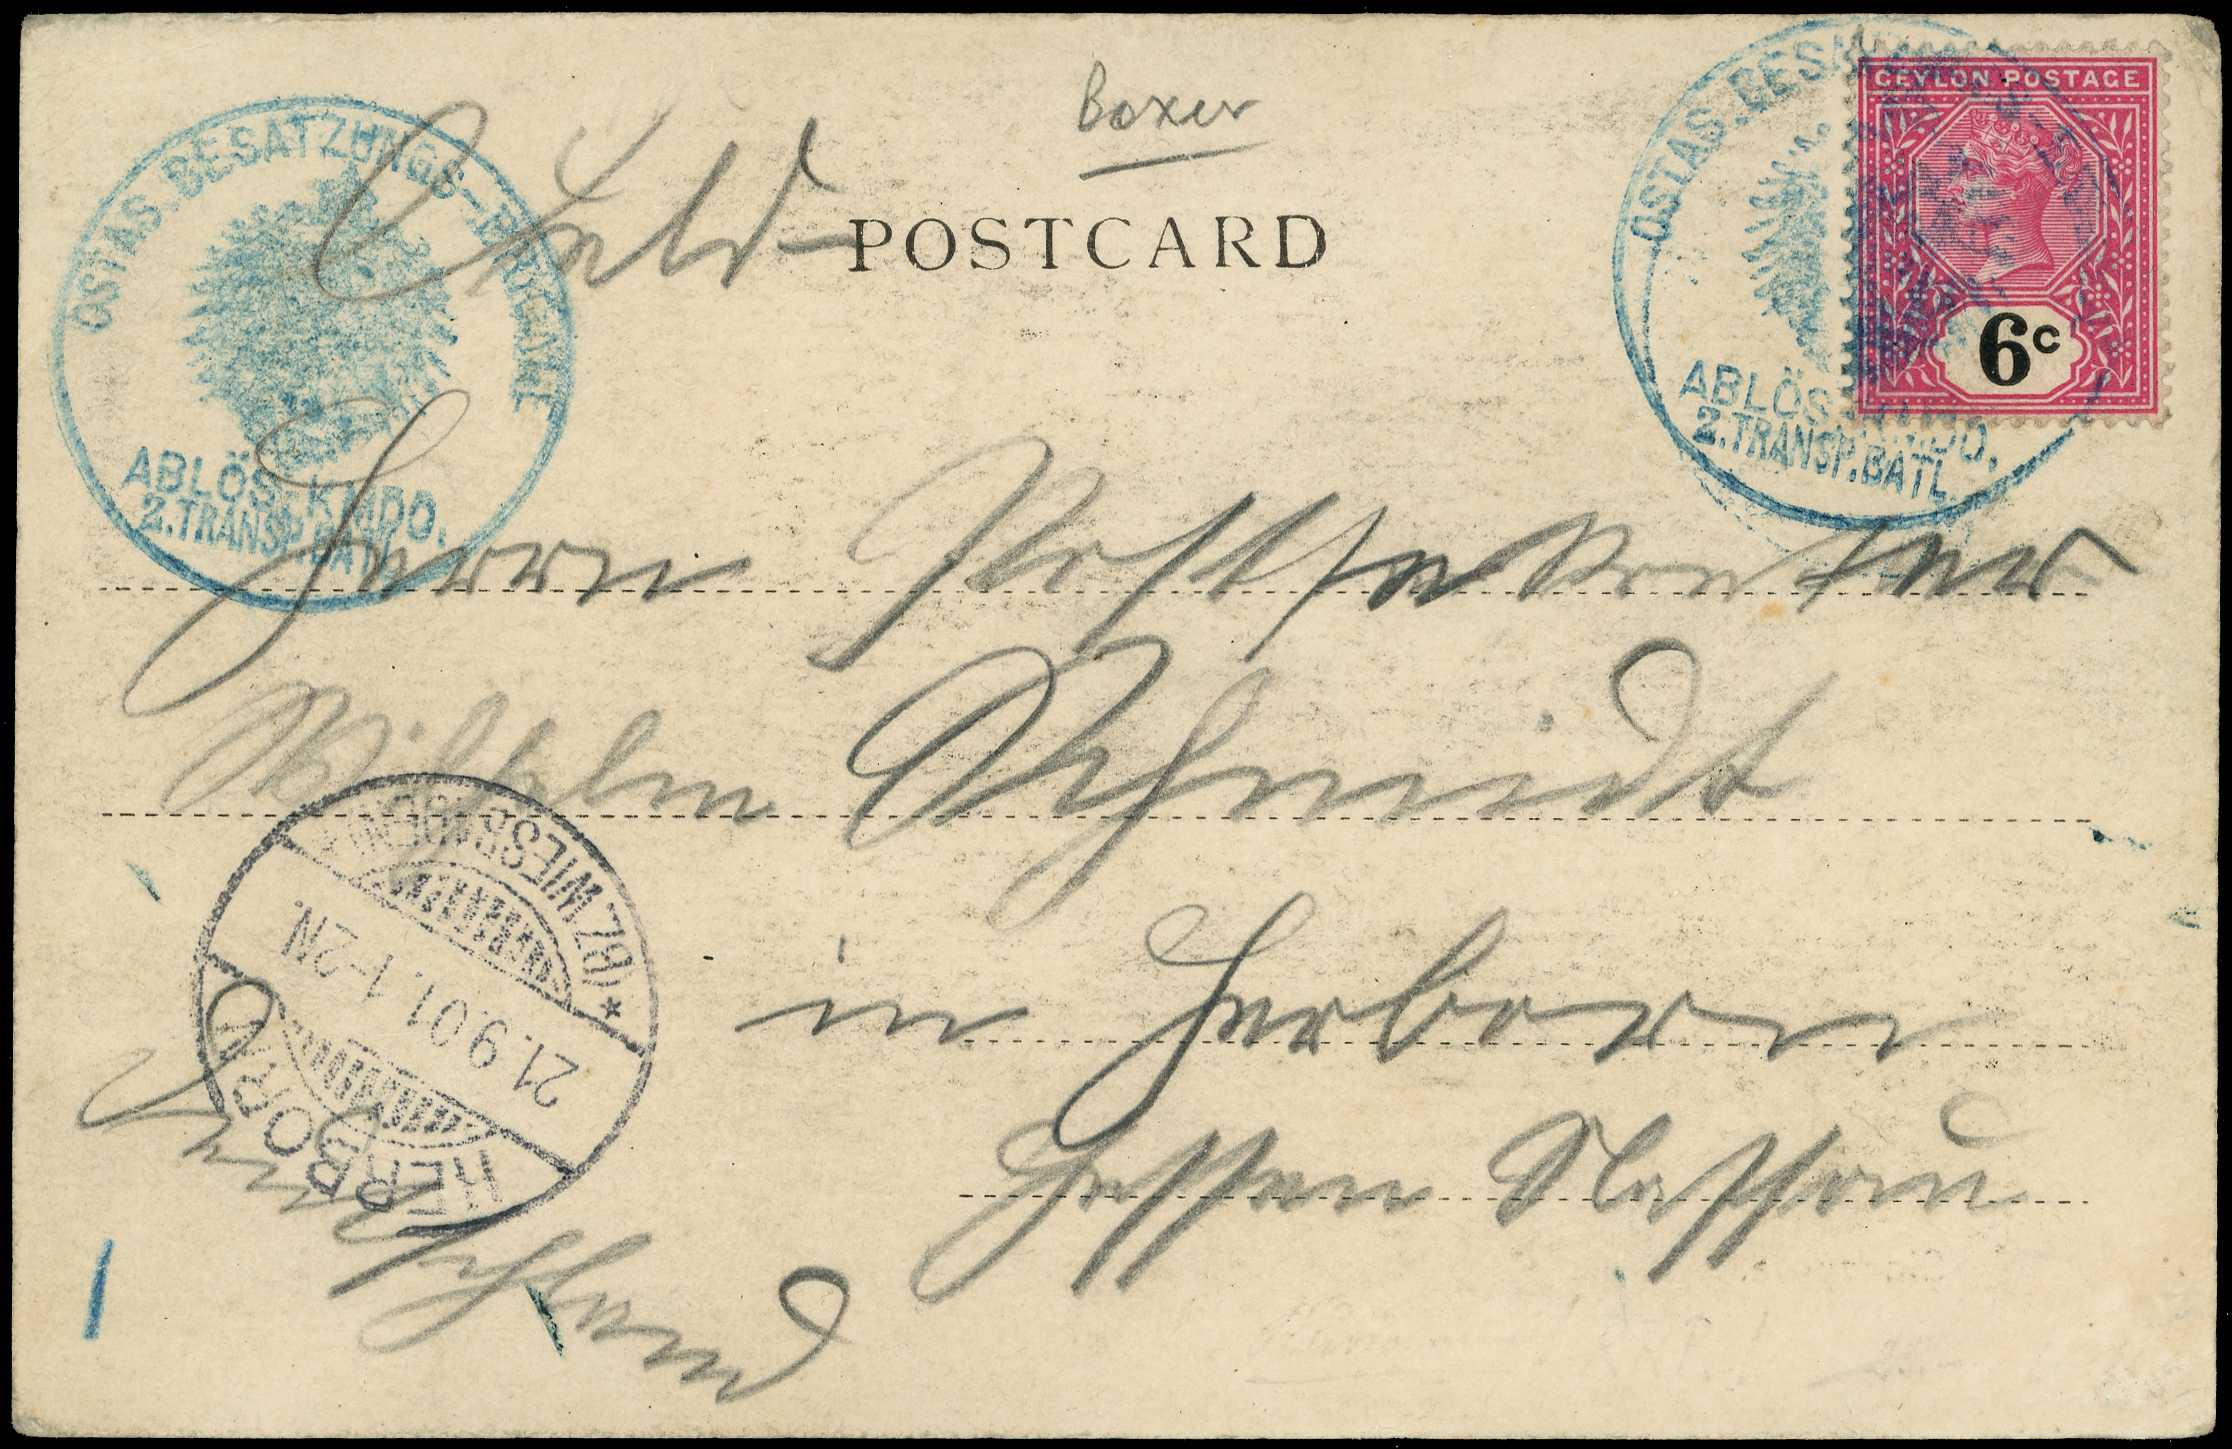 Boxer
CEYLON POSTAGE
6c
POSTCARD
OSTAS. BESATZUNGS-BRIGADE
ABLÖS-KMDO.
2.TRANSP.BATL.
OSTAS. BESATZUNGS
ABLÖS-KMDO.
2.TRANSP.BATL.
Herrn Postsekretär
Wilhelm Schmidt
in Herborn
Hessen Nassau
Deutschland
HERBORN
21.9.01.1-2N.
(BZ. WIESBADEN)